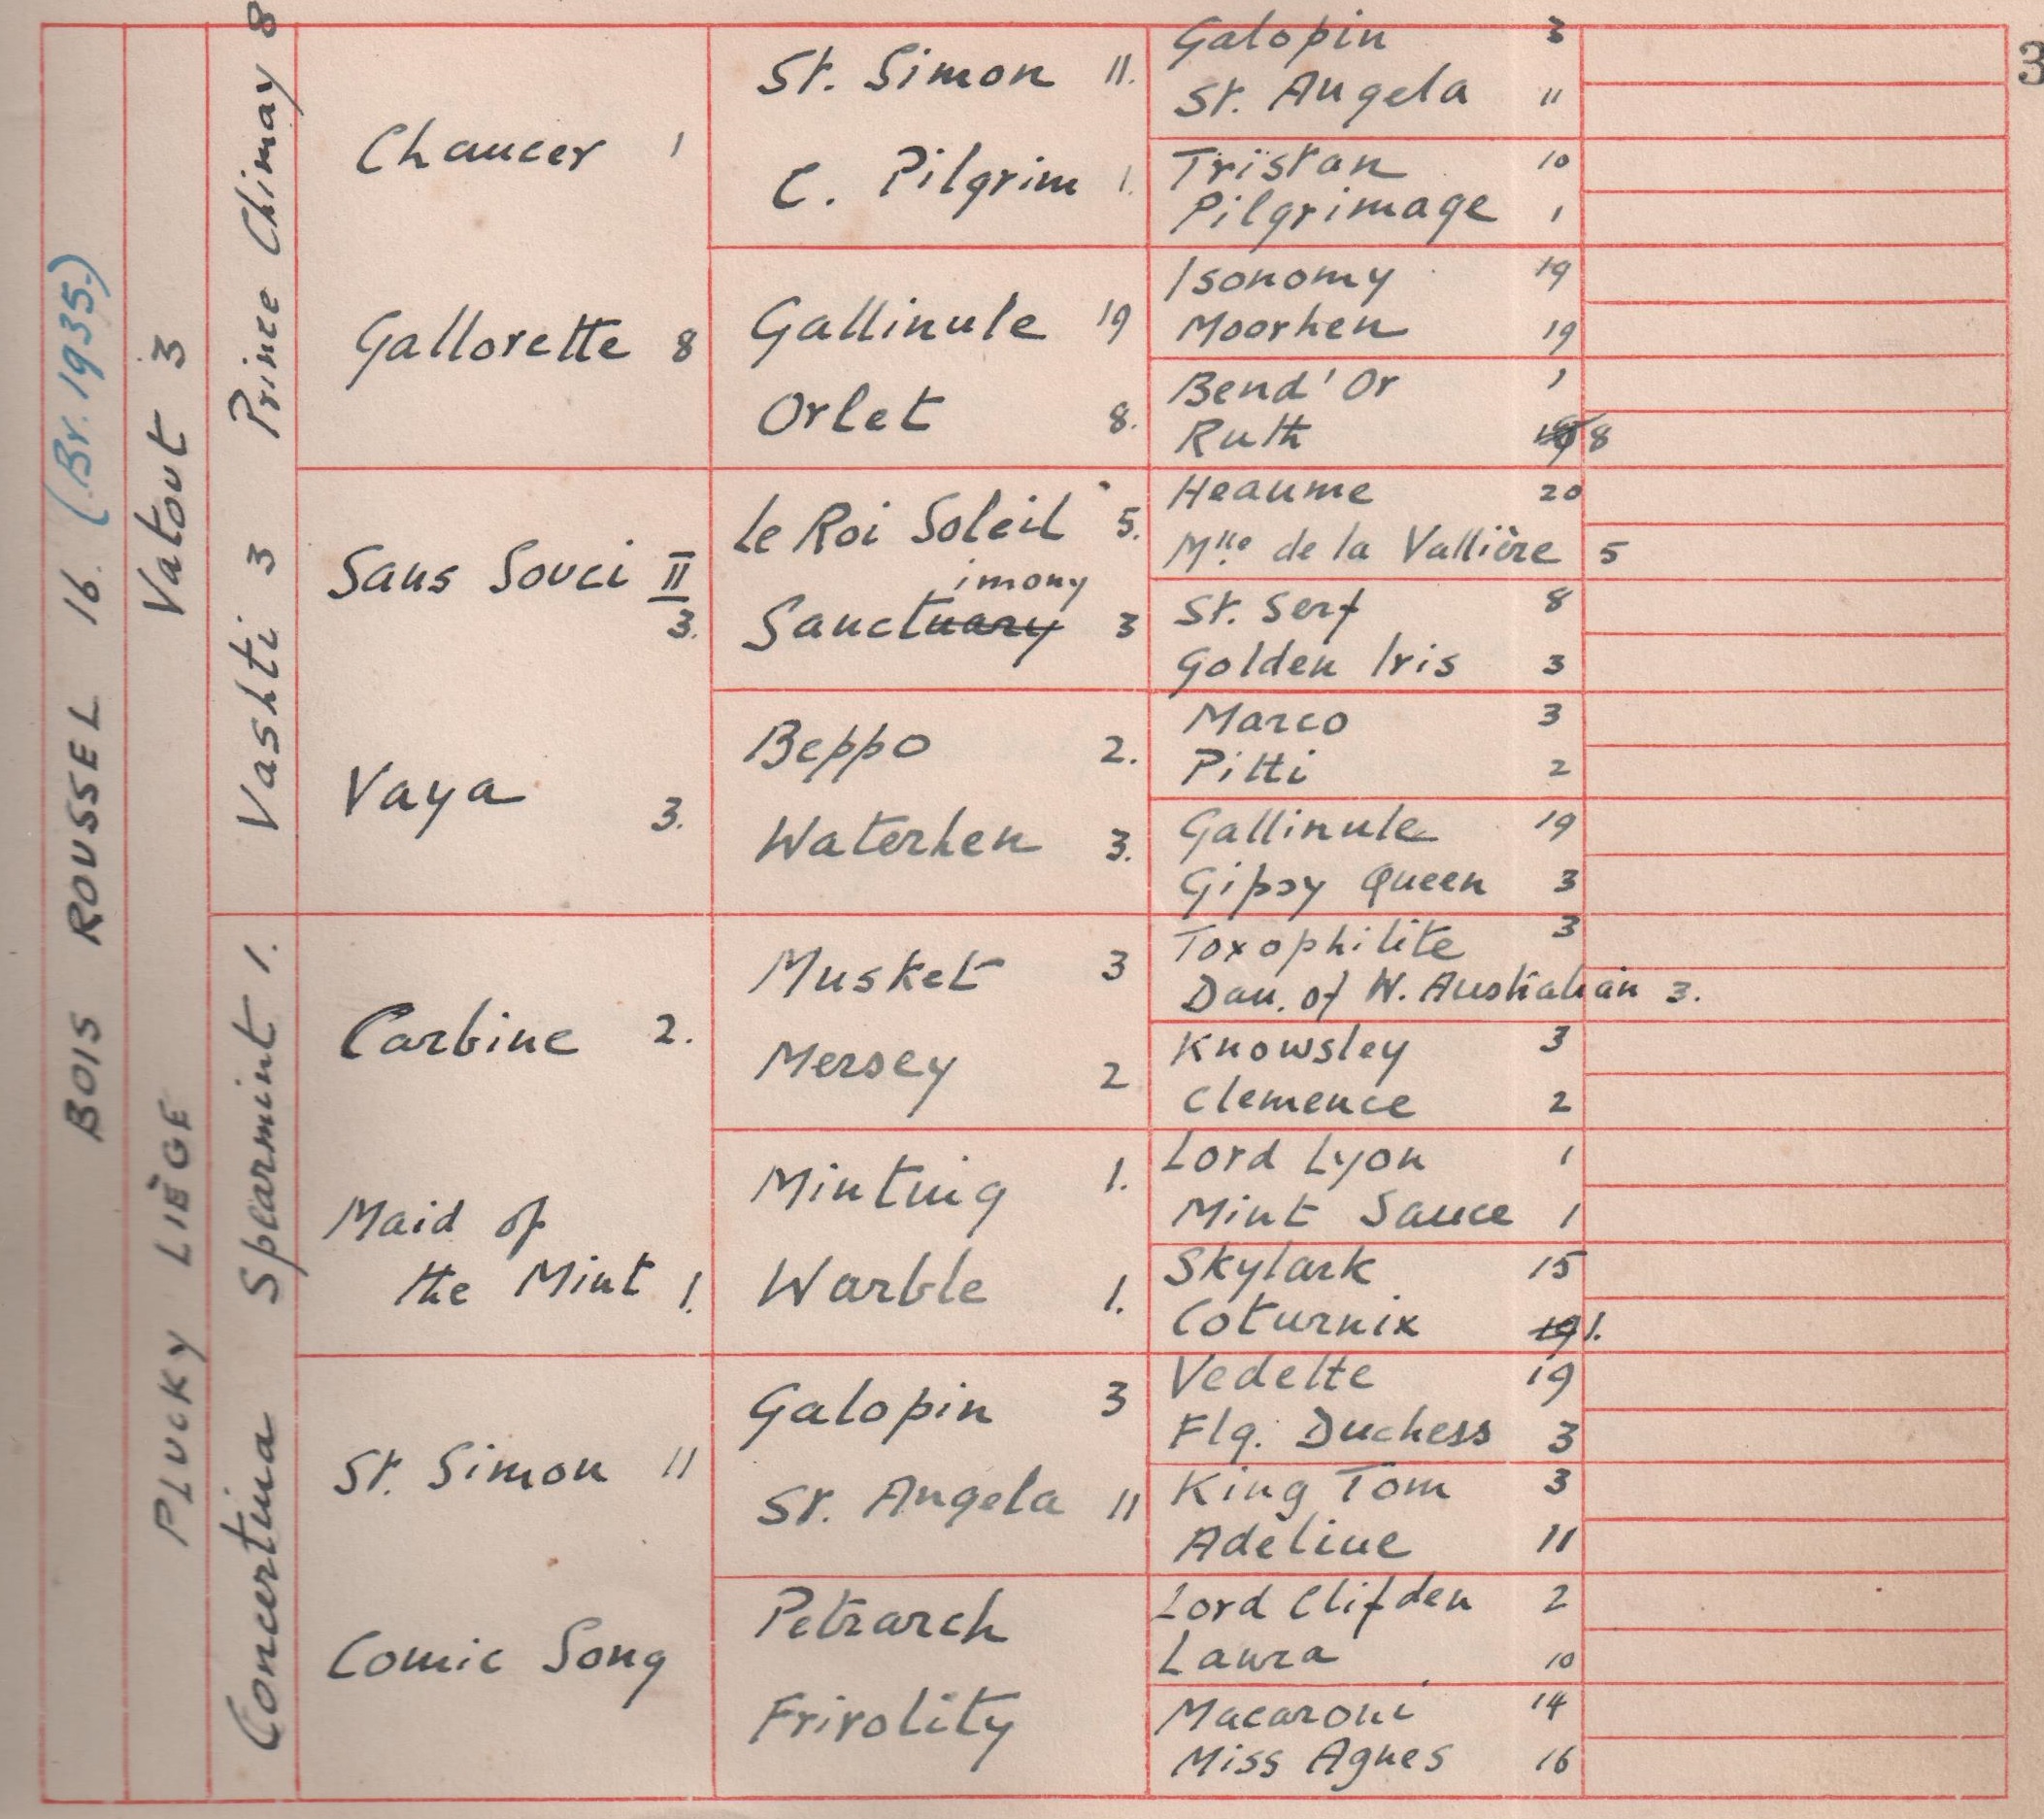 3
BOIS ROUSSEL 16. (Br. 1935.)
Vatout 3
PLUCKY LIÈGE
Prince Chimay 8
Vashti 3
Spearmint 1.
Concertina
Chaucer 1
Gallorette 8
Sans Souci II
3.
Vaya 3.
Carbine 2.
Maid of
the Mint 1.
St. Simon 11
Comic Song
St. Simon 11.
C. Pilgrim 1.
Gallinule 19
Orlet 8.
Le Roi Soleil 5.
imony
Sanctuary 3
Beppo 2.
Waterhen 3.
Musket 3
Mersey 2
Minting 1.
Warble 1.
Galopin 3
St. Angela 11
Petrarch
Frivolity
Galopin 3
St. Angela 11
Tristan 10
Pilgrimage 1
Isonomy 19
Moorhen 19
Bend'Or 1
Ruth 19 8
Heaume 20
Mlle de la Vallière 5
St. Serf 8
Golden Iris 3
Marco 3
Pitti 2
Gallinule 19
Gipsy Queen 3
Toxophilite 3
Dau. of W. Australian 3.
Knowsley 3
Clemence 2
Lord Lyon 1
Mint Sauce 1
Skylark 15
Coturnix 19 1.
Vedette 19
Flg. Duchess 3
King Tom 3
Adeline 11
Lord Clifden 2
Laura 10
Macaroni 14
Miss Agnes 16